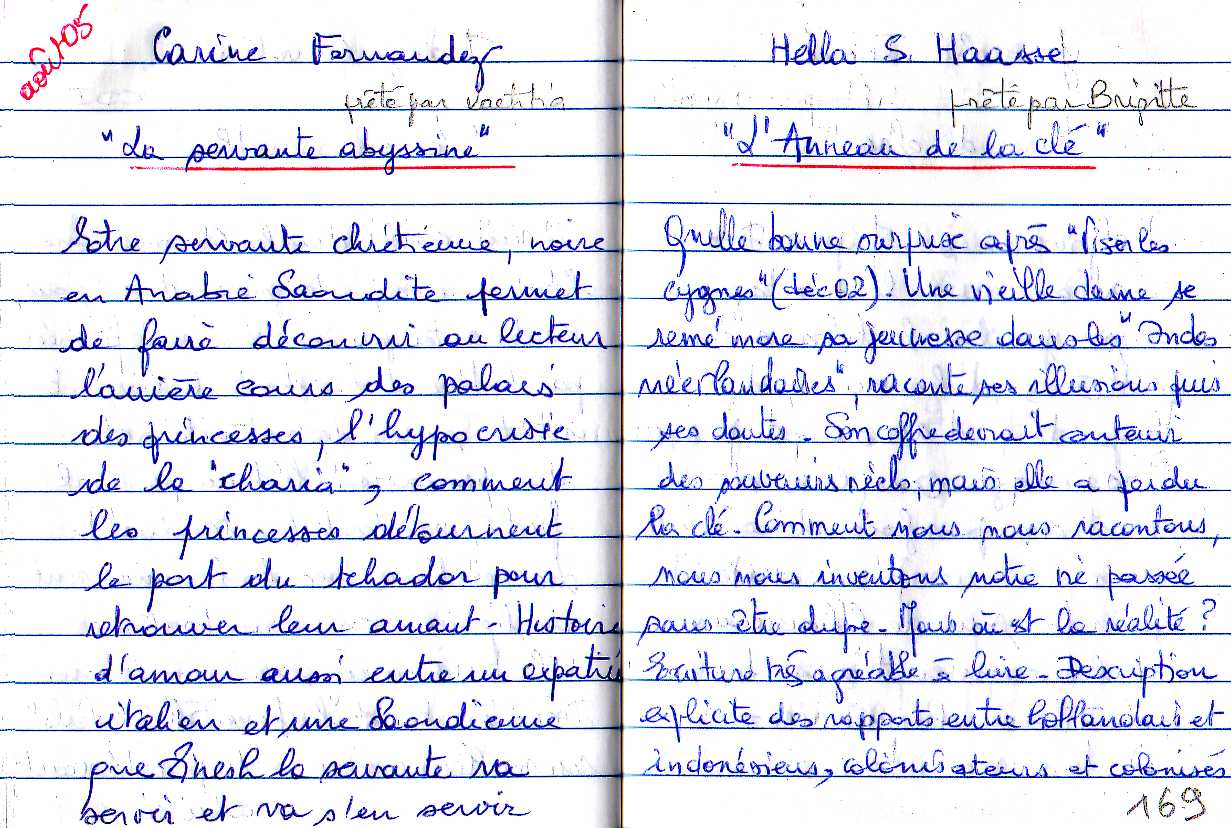 août 05
Carine Fernandez
prêté par Laetitia
"La servante abyssine"
Etre servante chrétienne, noire
en Arabie Saoudite permet
de faire découvrir au lecteur
l'arrière cours des palais
des princesses, l'hypocrisie
de la "charia", comment
les princesses détournent
le port du tchador pour
retrouver leur amant - Histoire
d'amour aussi entre un expatrié
italien et une Saoudienne
que Zinesh la servante va
servir et va s'en servir
Hella S. Haasse
prêté par Brigitte
"L'Anneau de la clé"
Quelle bonne surprise après "Viser les
cygnes" (déc 02). Une vieille dame se
remémore sa jeunesse dans les "Indes
néerlandaises", raconte ses illusions puis
ses doutes - Son coffre devrait contenir
des souvenirs réels, mais elle a perdu
la clé - Comment nous nous racontons,
nous nous inventons notre passé
sans être dupe - Mais où est la réalité ?
Ecriture très agréable à lire - Description
explicite des rapports entre hollandais et
indonésiens, colonisateurs et colonisés
169